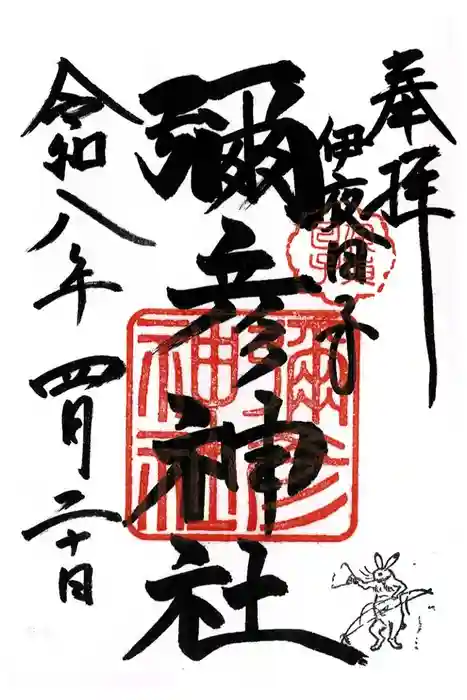 奉拝
伊夜日子
彌彦神社
令和八年四月二十日
彌彦神社